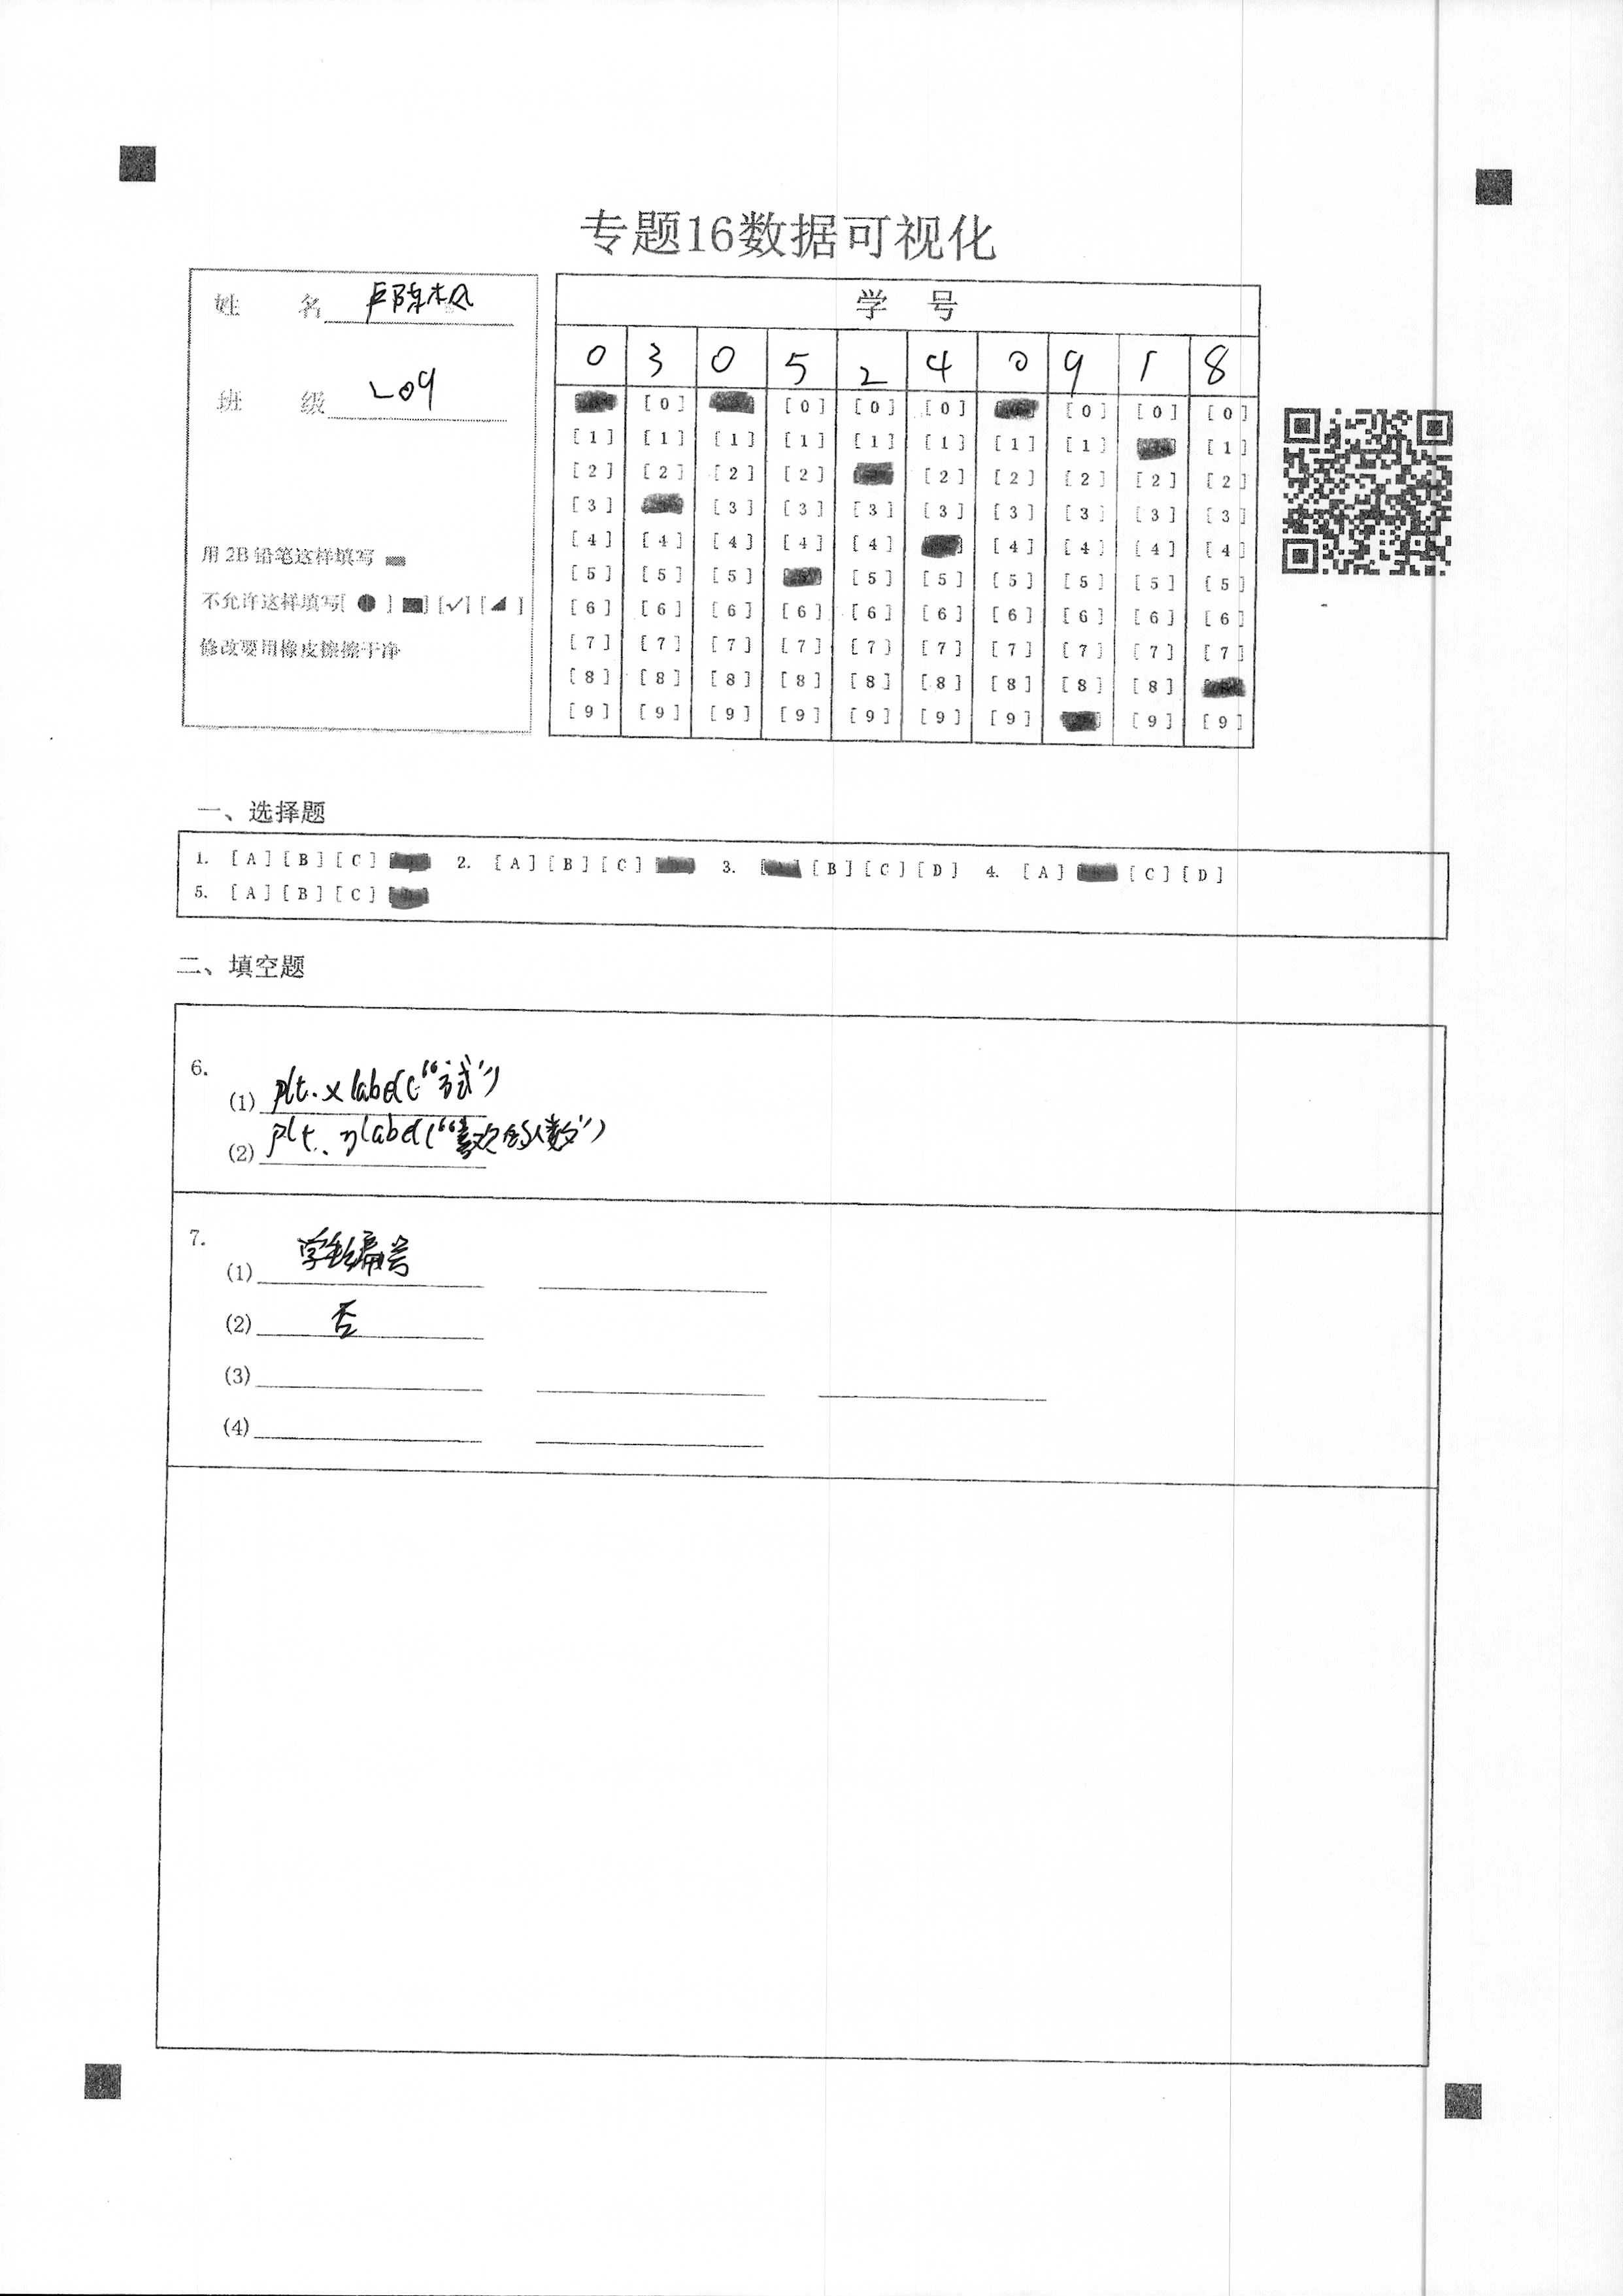 专题16数据可视化
姓 名 卢陈木风
班 级 209
用 2B 铅笔这样填写
不允许这样填写[ ● ] [■] [✓] [◢ ]
修改要用橡皮擦擦干净
学 号
0 3 0 5 2 4 0 9 1 8
[0] [0] [0] [0] [0] [0] [0]
[1] [1] [1] [1] [1] [1] [1] [1] [1]
[2] [2] [2] [2] [2] [2] [2] [2] [2]
[3] [3] [3] [3] [3] [3] [3] [3] [3]
[4] [4] [4] [4] [4] [4] [4] [4] [4]
[5] [5] [5] [5] [5] [5] [5] [5] [5]
[6] [6] [6] [6] [6] [6] [6] [6] [6] [6]
[7] [7] [7] [7] [7] [7] [7] [7] [7] [7]
[8] [8] [8] [8] [8] [8] [8] [8] [8]
[9] [9] [9] [9] [9] [9] [9] [9] [9]
一、选择题
1. [A] [B] [C] 2. [A] [B] [C] 3. [B] [C] [D] 4. [A] [C] [D]
5. [A] [B] [C]
二、填空题
6.
(1) plt.xlabel("方式")
(2) plt.ylabel("喜欢的人数")
7.
(1) 学生编号
(2) 否
(3)
(4)